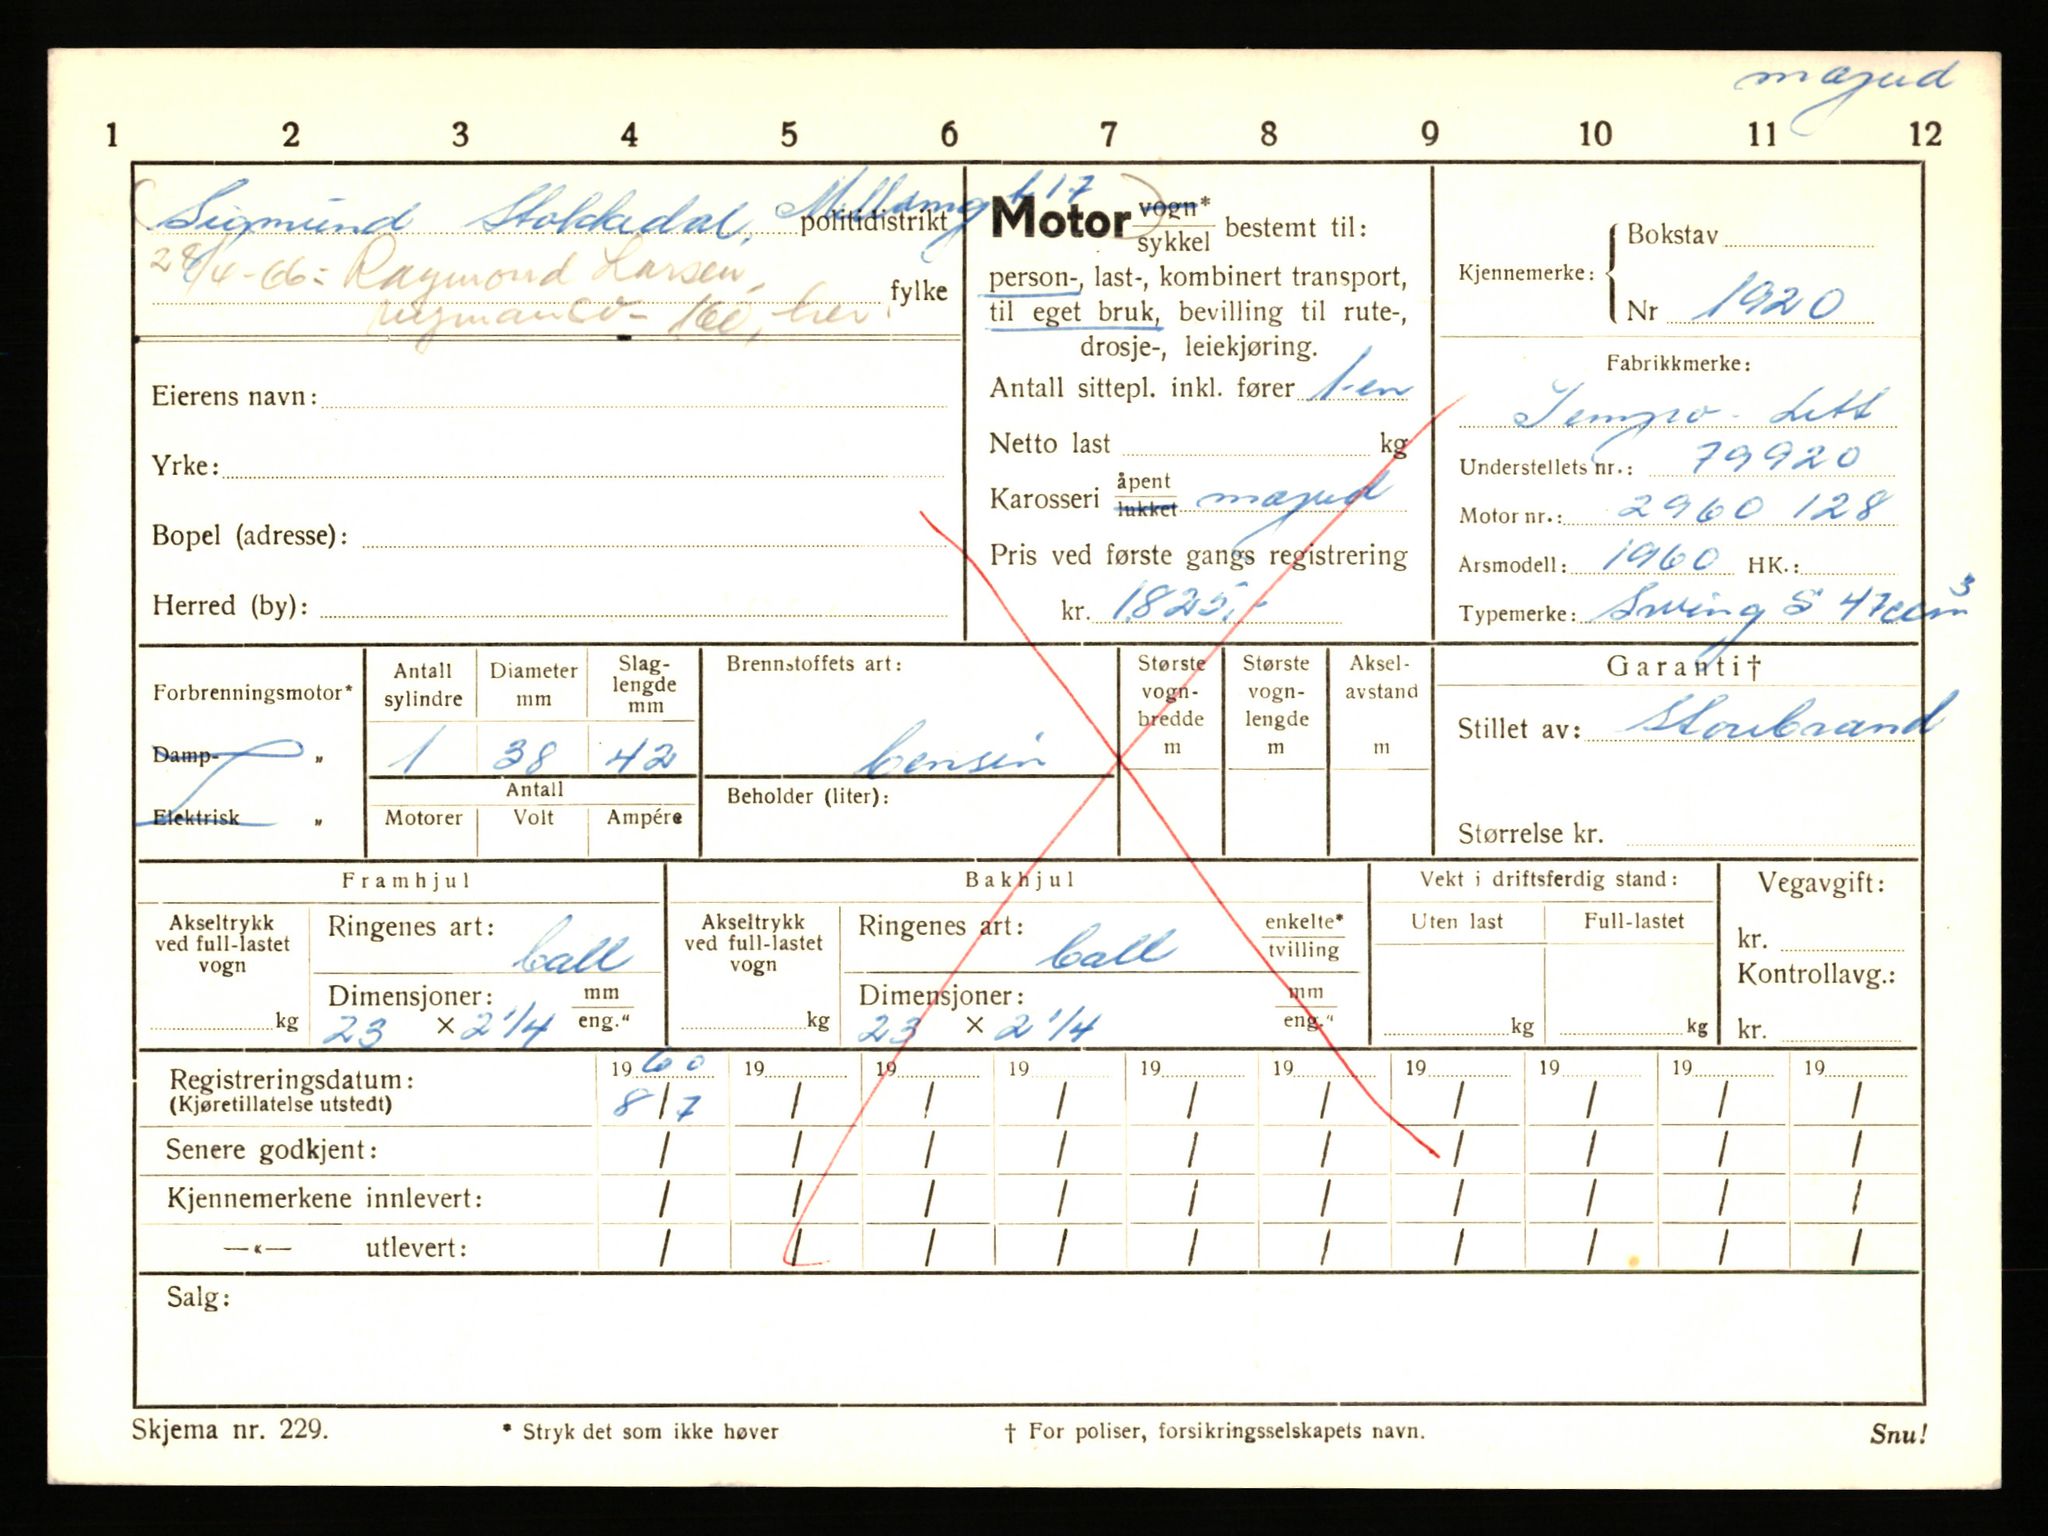 møgud
1 2 3 4 5 6 7 8 9 10 11 12
Sigmund Stokkedal, politidistrikt
28/4-66: Raymond Larsen, fylke
160, her.
Eierens navn:
Yrke:
Bopel (adresse):
Herred (by):
Motor vogn* sykkel bestemt til:
person-, last-, kombinert transport,
til eget bruk, bevilling til rute-,
drosje-, leiekjøring.
Antall sittepl. inkl. fører 1-en
Netto last kg
Karosseri åpent lukket møgud
Pris ved første gangs registrering
kr. 1825,-
Kjennemerke: Bokstav
Nr 1920
Fabrikkmerke:
Tempo - Lett
Understellets nr.: 79920
Motor nr.: 2960 128
Arsmodell: 1960 HK.:
Typemerke: Swing S 47ccm³
Forbrenningsmotor*
Damp- „
Elektrisk „
Antall sylindre
Diameter mm
Slag-lengde mm
1 38 42
Antall
Motorer Volt Ampére
Brennstoffets art:
bensin
Beholder (liter):
Største vogn-bredde m
Største vogn-lengde m
Aksel-avstand m
Garanti†
Stillet av: Storebrand
Størrelse kr.
Framhjul
Akseltrykk ved full-lastet vogn
kg
Ringenes art: ball
Dimensjoner: mm eng."
23 × 2 1/4
Bakhjul
Akseltrykk ved full-lastet vogn
kg
Ringenes art: ball enkelte* tvilling
Dimensjoner: mm eng."
23 × 2 1/4
Vekt i driftsferdig stand:
Uten last Full-lastet
kg kg
Vegavgift:
kr.
Kontrollavg.:
kr.
Registreringsdatum: 1960 19 19 19 19 19 19 19 19 19
(Kjøretillatelse utstedt) 8/7 / / / / / / / / /
Senere godkjent: / / / / / / / / / /
Kjennemerkene innlevert: / / / / / / / / / /
—«— utlevert: / / / / / / / / / /
Salg:
Skjema nr. 229. * Stryk det som ikke høver † For poliser, forsikringsselskapets navn. Snu!